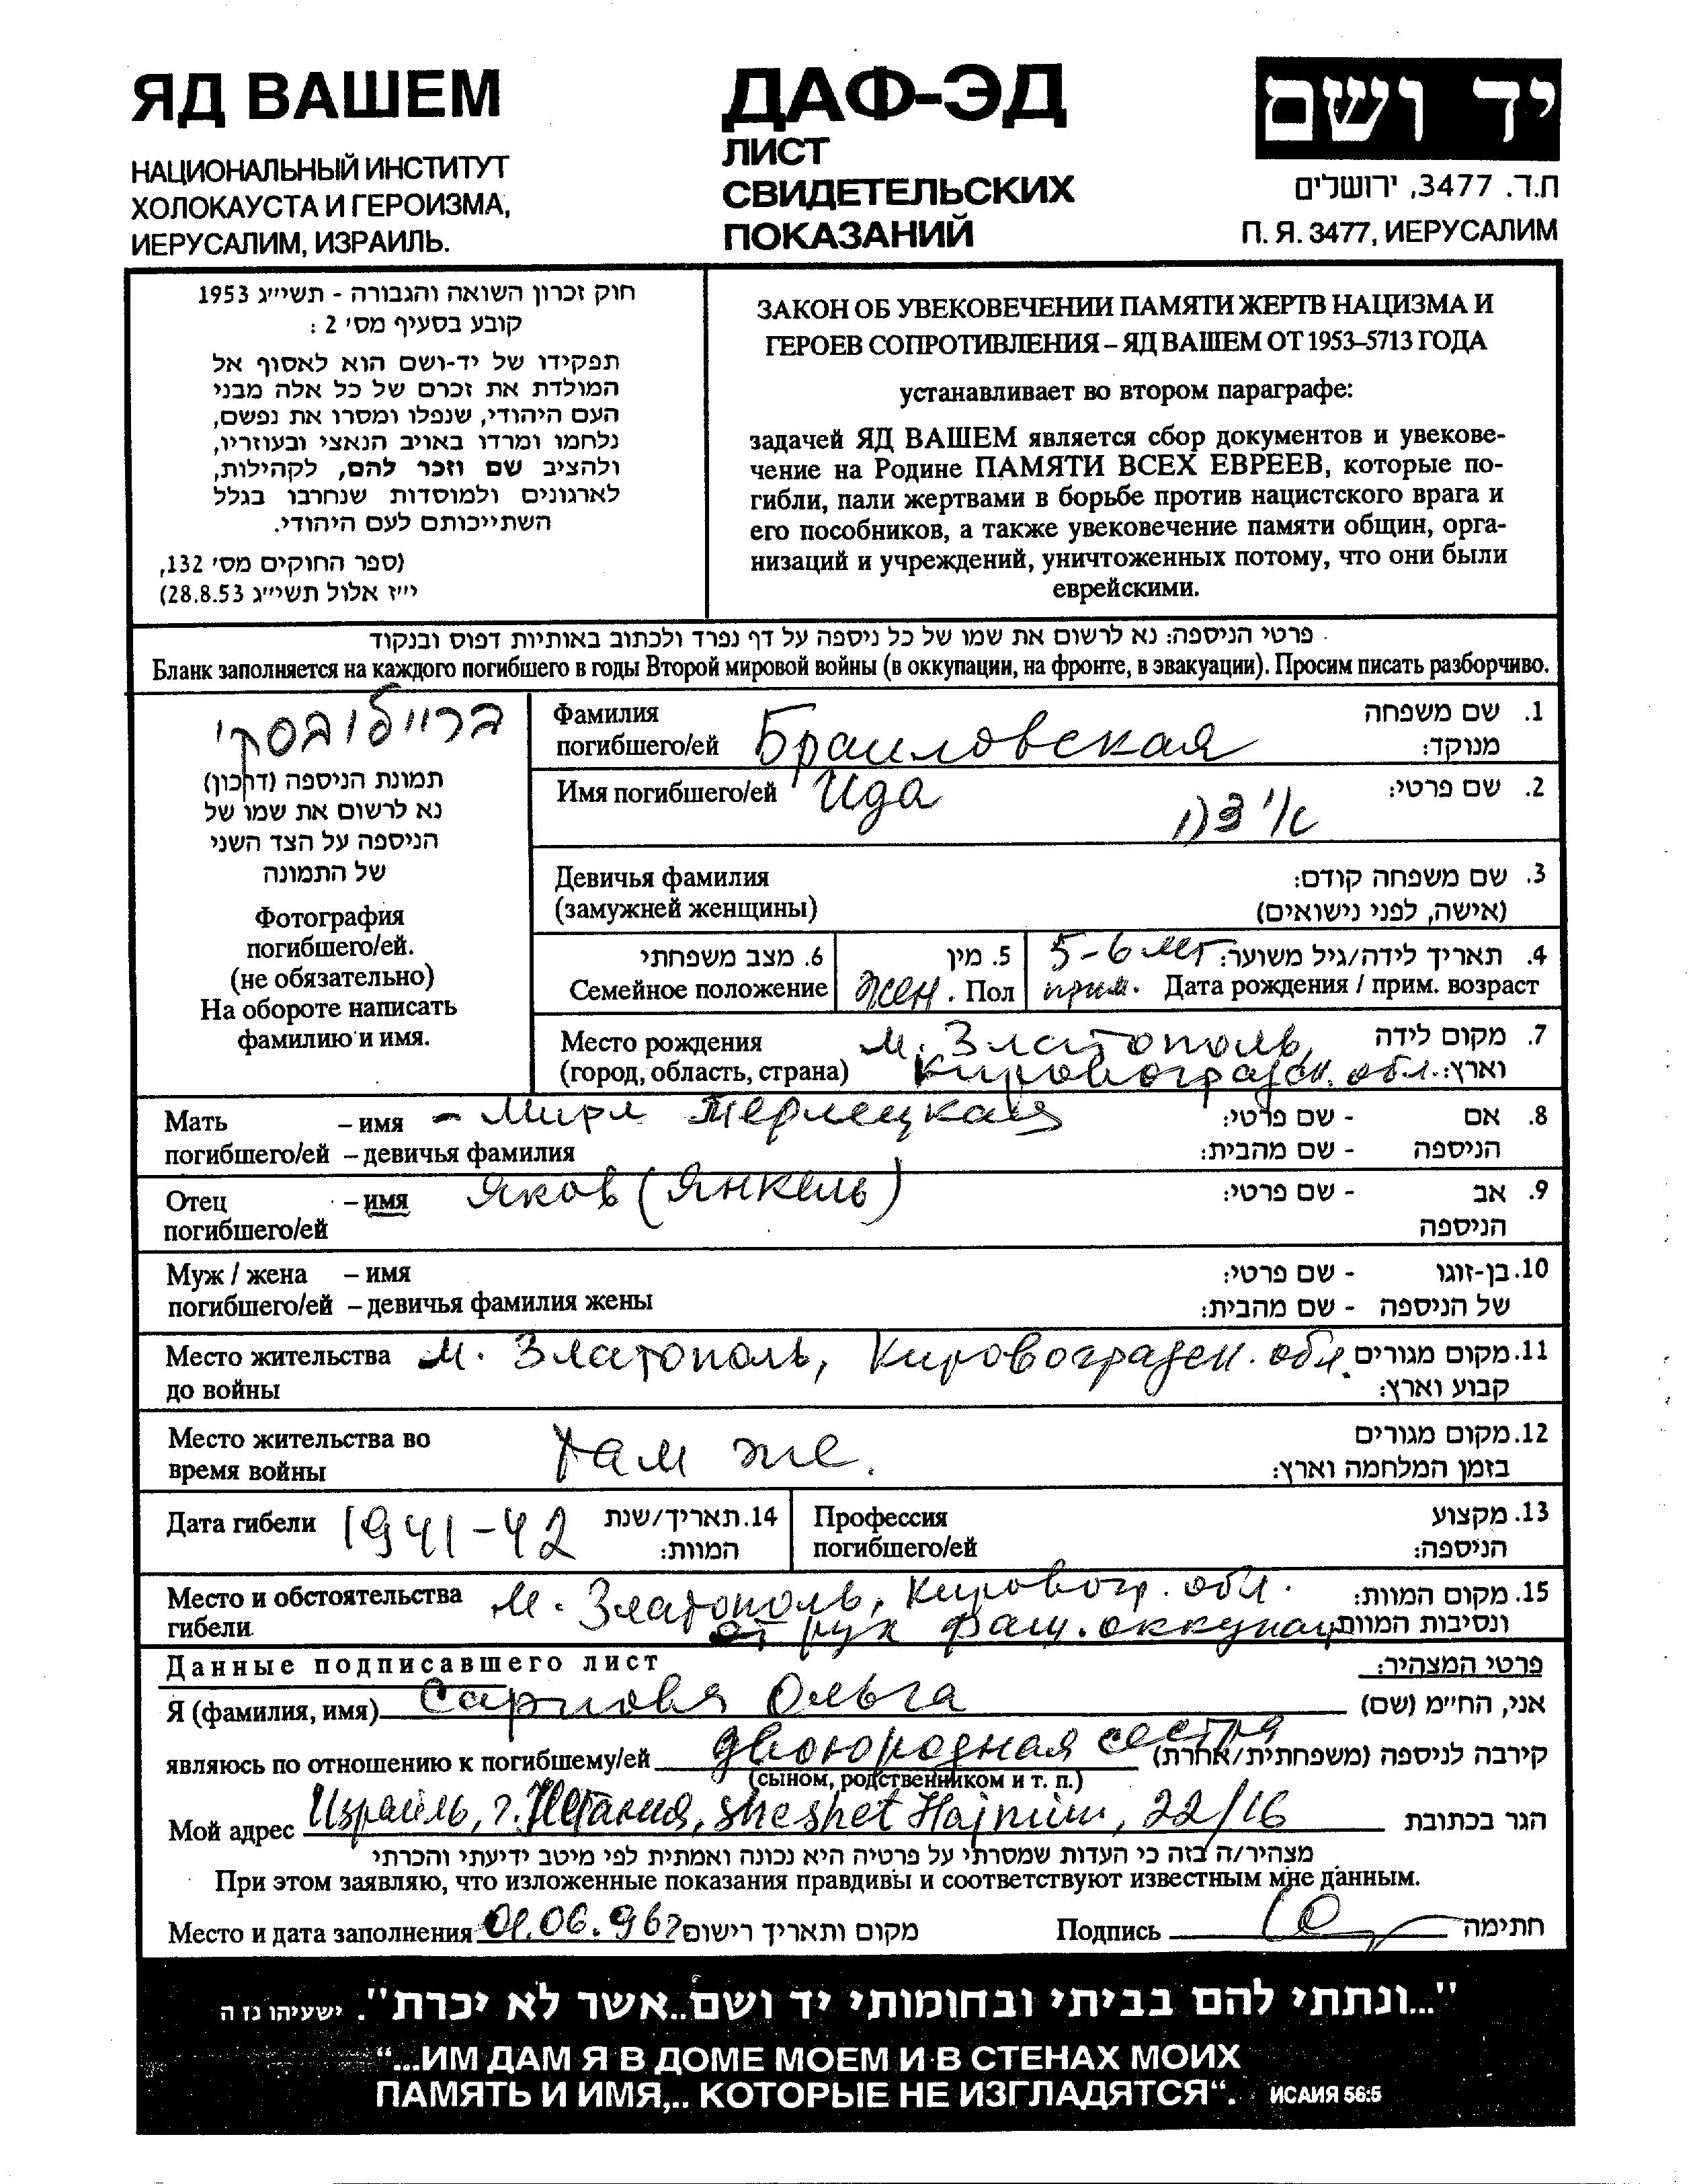 ЯД ВАШЕМ
НАЦИОНАЛЬНЫЙ ИНСТИТУТ
ХОЛОКАУСТА И ГЕРОИЗМА,
ИЕРУСАЛИМ, ИЗРАИЛЬ.
ДАФ-ЭД
ЛИСТ
СВИДЕТЕЛЬСКИХ
ПОКАЗАНИЙ
יד ושם
ת.ד. 3477, ירושלים
П. Я. 3477, ИЕРУСАЛИМ
חוק זכרון השואה והגבורה - תשי״ג 1953
קובע בסעיף מס׳ 2 :
תפקידו של יד-ושם הוא לאסוף אל
המולדת את זכרם של כל אלה מבני
העם היהודי, שנפלו ומסרו את נפשם,
נלחמו ומרדו באויב הנאצי ובעוזריו,
ולהציב שם וזכר להם, לקהילות,
לארגונים ולמוסדות שנחרבו בגלל
השתייכותם לעם היהודי.
(ספר החוקים מס׳ 132,
י״ז אלול תשי״ג 28.8.53)
ЗАКОН ОБ УВЕКОВЕЧЕНИИ ПАМЯТИ ЖЕРТВ НАЦИЗМА И
ГЕРОЕВ СОПРОТИВЛЕНИЯ – ЯД ВАШЕМ ОТ 1953–5713 ГОДА
устанавливает во втором параграфе:
задачей ЯД ВАШЕМ является сбор документов и увекове-
чение на Родине ПАМЯТИ ВСЕХ ЕВРЕЕВ, которые по-
гибли, пали жертвами в борьбе против нацистского врага и
его пособников, а также увековечение памяти общин, орга-
низаций и учреждений, уничтоженных потому, что они были
еврейскими.
פרטי הניספה: נא לרשום את שמו של כל ניספה על דף נפרד ולכתוב באותיות דפוס ובנקוד
Бланк заполняется на каждого погибшего в годы Второй мировой войны (в оккупации, на фронте, в эвакуации). Просим писать разборчиво.
ברײלובסקי
תמונת הניספה (דרכון)
נא לרשום את שמו של
הניספה על הצד השני
של התמונה
Фотография
погибшего/ей.
(не обязательно)
На обороте написать
фамилию и имя.
Фамилия
погибшего/ей Браиловская
1. שם משפחה
מנוקד:
Имя погибшего/ей Ида
2. שם פרטי:
Девичья фамилия
(замужней женщины)
3. שם משפחה קודם:
(אישה, לפני נישואים)
6. מצב משפחתי
Семейное положение
5. מין
жен. Пол
4. תאריך לידה/גיל משוער: 5-6 лет
прим. Дата рождения / прим. возраст
Место рождения м. Златополь,
(город, область, страна) Кировоградск. обл.
7. מקום לידה
וארץ:
Мать – имя – Мирл Терлецкая
погибшего/ей – девичья фамилия
8. אם - שם פרטי:
הניספה - שם מהבית:
Отец – имя Яков (Янкель)
погибшего/ей
9. אב - שם פרטי:
הניספה
Муж / жена – имя
погибшего/ей – девичья фамилия жены
10. בן-זוגו - שם פרטי:
של הניספה - שם מהבית:
Место жительства м. Златополь, Кировоградск. обл.
до войны
11. מקום מגורים
קבוע וארץ:
Место жительства во
время войны там же.
12. מקום מגורים
בזמן המלחמה וארץ:
Дата гибели 1941-42
14. תאריך/שנת
המוות:
Профессия
погибшего/ей
13. מקצוע
הניספה:
Место и обстоятельства м. Златополь, Кировогр. обл.
гибели от рук фаш. оккупац
15. מקום המוות:
ונסיבות המוות
Данные подписавшего лист
פרטי המצהיר:
Я (фамилия, имя) Ольга
אני, הח״מ (שם)
являюсь по отношению к погибшему/ей двоюродная сестра
(сыном, родственником и т. п.)
קירבה לניספה (משפחתית/אחרת)
Мой адрес Израиль, г. Нетания, sheshet Hajmim, 22/16
הגר בכתובת
מצהיר/ה בזה כי העדות שמסרתי על פרטיה היא נכונה ואמתית לפי מיטב ידיעתי והכרתי
При этом заявляю, что изложенные показания правдивы и соответствуют известным мне данным.
Место и дата заполнения 01.06.96г
מקום ותאריך רישום
Подпись
חתימה
"...ונתתי להם בביתי ובחומותי יד ושם..אשר לא יכרת". ישעיהו נז ה
“...ИМ ДАМ Я В ДОМЕ МОЕМ И В СТЕНАХ МОИХ
ПАМЯТЬ И ИМЯ,.. КОТОРЫЕ НЕ ИЗГЛАДЯТСЯ“. ИСАИЯ 56:5